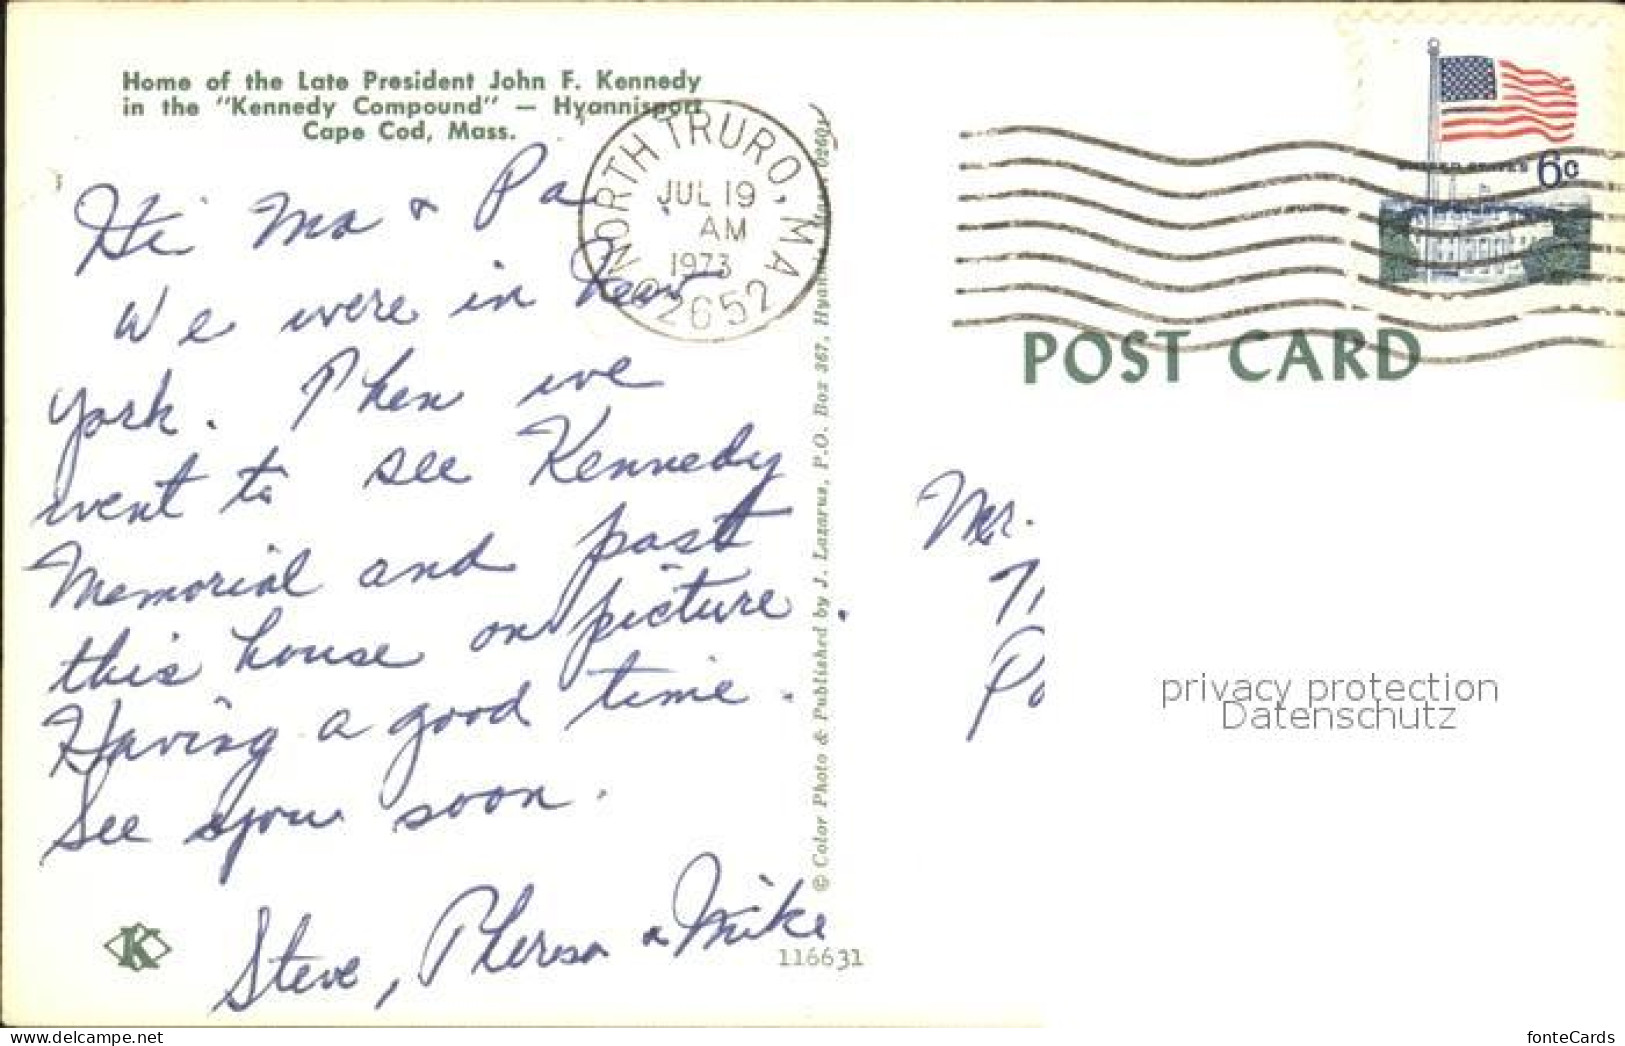 Home of the Late President John F. Kennedy
in the "Kennedy Compound" — Hyannisport
Cape Cod, Mass.
Hi Ma & Pa
We were in New
York. Then we
went to see Kennedy
Memorial and past
this house on picture.
Having a good time.
See you soon.
Steve, Theresa & Mike
K
116631
© Color Photo & Published by J. Lazarus, P.O. Box 367, Hyannis, 02601
NORTH TRURO, MA
JUL 19
AM
1973
02652
UNITED STATES 6c
POST CARD
Mr.
privacy protection
Datenschutz
www.delcampe.net
fonteCards